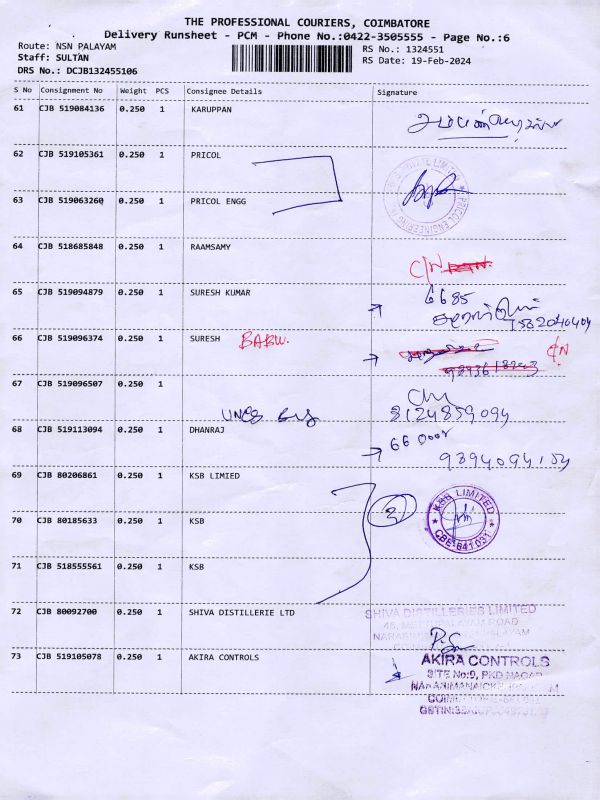 THE PROFESSIONAL COURIERS, COIMBATORE
Delivery Runsheet - PCM - Phone No.:0422-3505555 - Page No.:6
Route: NSN PALAYAM
RS No.: 1324551
Staff: SULTAN
RS Date: 19-Feb-2024
DRS No.: DCJB132455106
S No Consignment No Weight PCS Consignee Details Signature
61 CJB 519084136 0.250 1 KARUPPAN
62 CJB 519105361 0.250 1 PRICOL
63 CJB 519063260 0.250 1 PRICOL ENGG
PRICOL ENGINEERING
64 CJB 518685848 0.250 1 RAAMSAMY
C/N
65 CJB 519094879 0.250 1 SURESH KUMAR
6685
66 CJB 519096374 0.250 1 SURESH BABU.
C/N
67 CJB 519096507 0.250 1
8124859094
68 CJB 519113094 0.250 1 DHANRAJ
66 Door
69 CJB 80206861 0.250 1 KSB LIMIED
3
KSB LIMITED
CBE-641 031
70 CJB 80185633 0.250 1 KSB
71 CJB 518555561 0.250 1 KSB
72 CJB 80092700 0.250 1 SHIVA DISTILLERIE LTD
SHIVA DISTILLERIES LIMITED
73 CJB 519105078 0.250 1 AKIRA CONTROLS
AKIRA CONTROLS
SITE No:9, PKD NAGAR